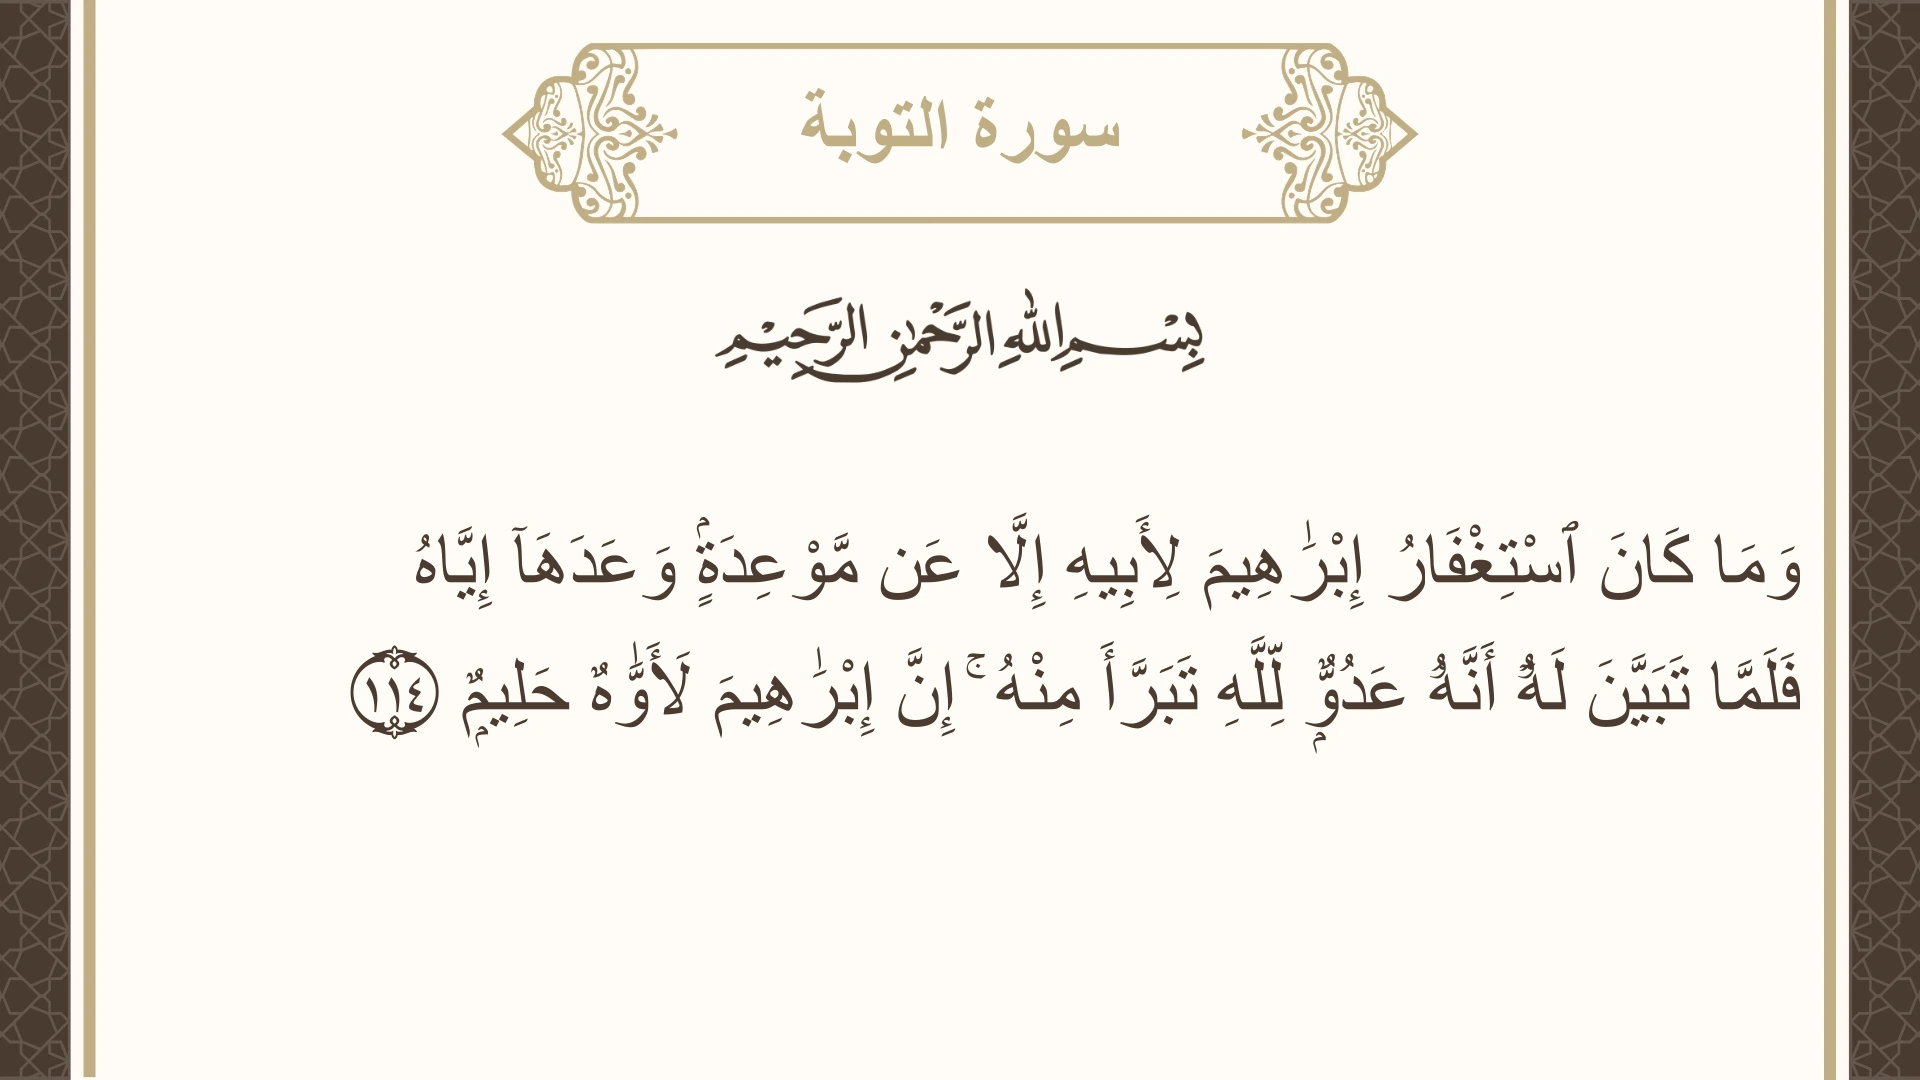 سورة التوبة
بِسْمِ اللهِ الرَّحْمٰنِ الرَّحِيْمِ
وَمَا كَانَ ٱسْتِغْفَارُ إِبْرَٰهِيمَ لِأَبِيهِ إِلَّا عَن مَّوْعِدَةٍۢ وَعَدَهَآ إِيَّاهُ
فَلَمَّا تَبَيَّنَ لَهُۥٓ أَنَّهُۥ عَدُوٌّۭ لِّلَّهِ تَبَرَّأَ مِنْهُ ۚ إِنَّ إِبْرَٰهِيمَ لَأَوَّٰهٌ حَلِيمٌۭ ١١٤